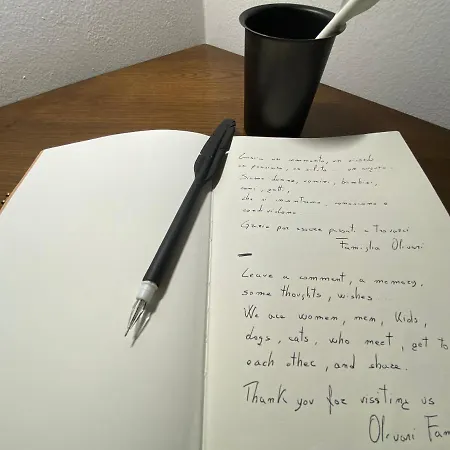 Lascia un commento, un ricordo
un pensiero, un saluto un
Siamo donne, uomini, bambini,
cani, gatti,
che si incontrano, conoscono e
condividono
Grazie per essere passati a trovarci
Famiglia Olivari
Leave a comment, a memory,
some thoughts, wishes
We are women, men, kids,
dogs, cats, who meet, get to
each other, and share.
Thank you for vissting us
Olivari Fam